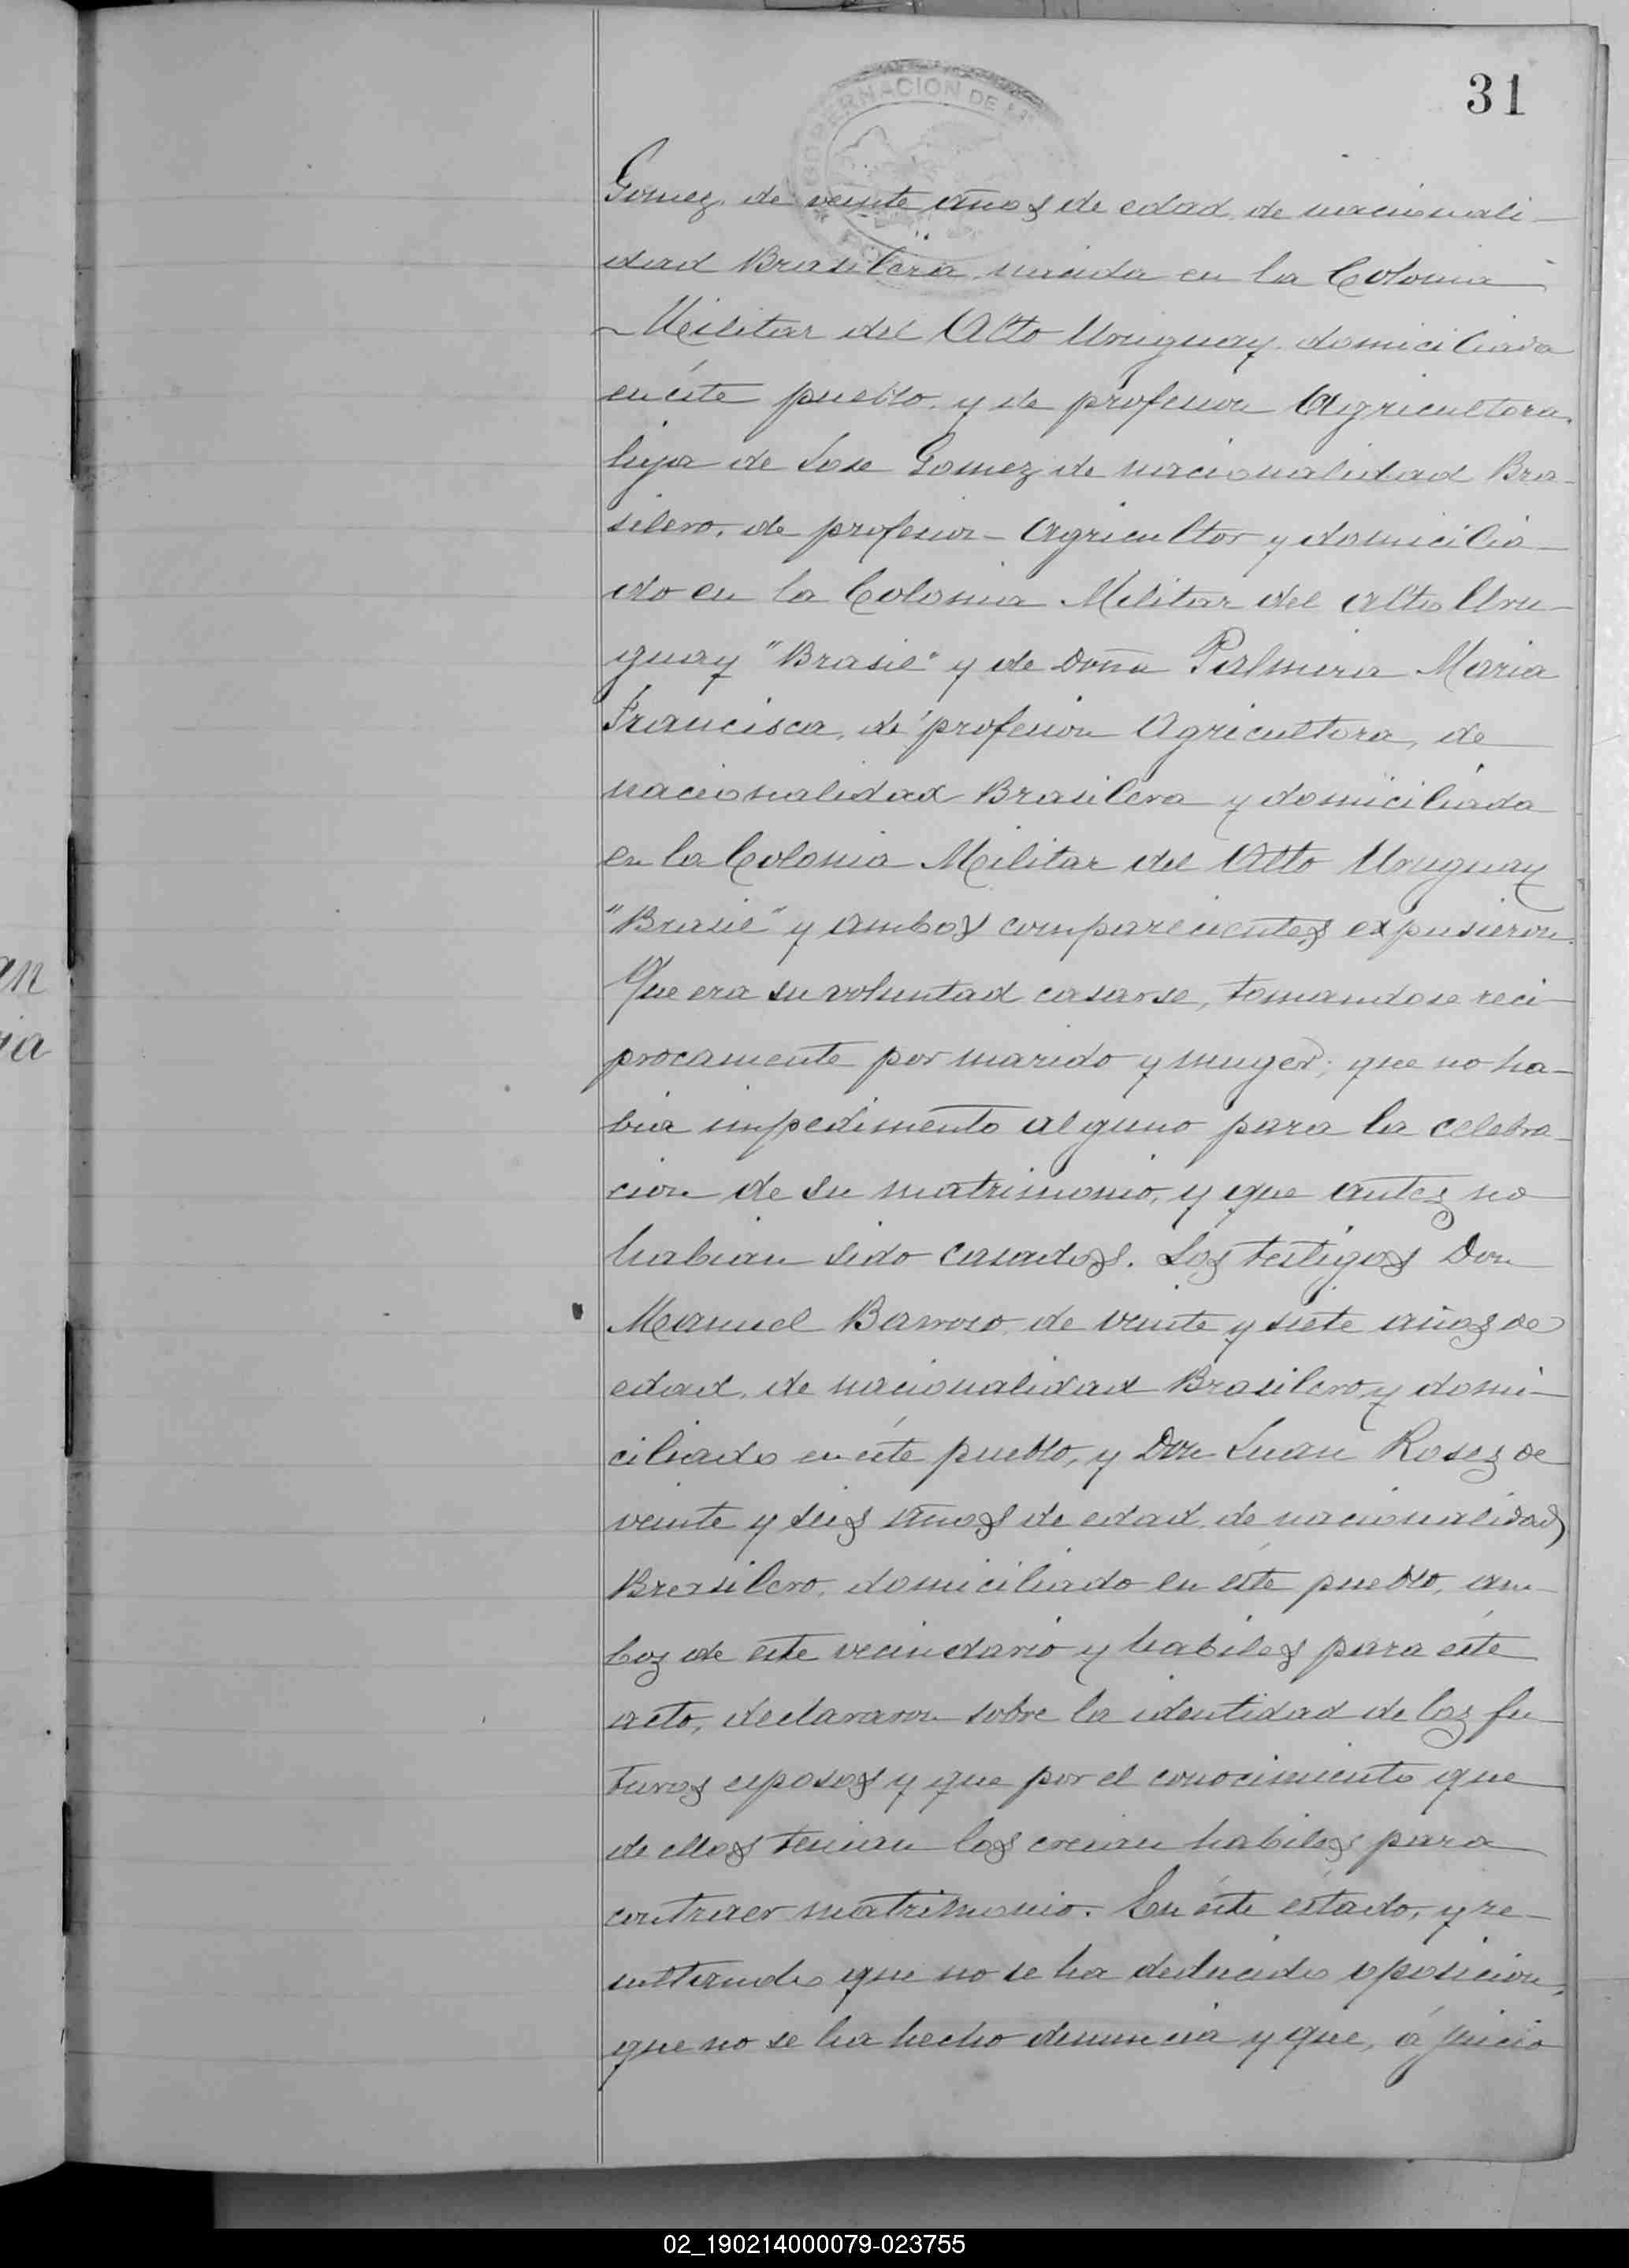 31
GOBERNACION DE
Gomez, de veinte años de edad, de nacionali-
dad Brasilera, nacida en la Colonia
Militar del Alto Uruguay, domiciliada
en éste pueblo, y de profesion Agricultora,
hija de Jose Gomez de nacionalidad Bra-
silero, de profesion Agricultor y domicilia-
do en la Colonia Militar del Alto Uru-
guay "Brasil" y de Doña Palmira Maria
Francisca, de profesion Agricultora, de
nacionalidad Brasilera y domiciliada
en la Colonia Militar del Alto Uruguay
"Brasil" y ambos comparecientes expusieron:
Que era su voluntad casarse, tomandose reci-
procamente por marido y muger; que no ha-
bia impedimento alguno para la celebra-
cion de su matrimonio, y que antes no
habian sido casados. Los testigos Don
Manuel Barroso de veinte y siete años de
edad, de nacionalidad Brasilero y domi-
ciliado en éste pueblo, y Don Juan Roses de
veinte y seis años de edad, de nacionalidad
Brasilero, domiciliado en éste pueblo, am-
bos de este vecindario y habiles para éste
acto, declararon sobre la identidad de los fu-
turos esposos y que por el conocimiento que
de ellos tenian los creian habiles para
contraer matrimonio. En éste éstado, y re-
sultando que no se ha deducido oposicion,
que no se ha hecho denuncia y que, á juicio
an
ia
02_190214000079-023755